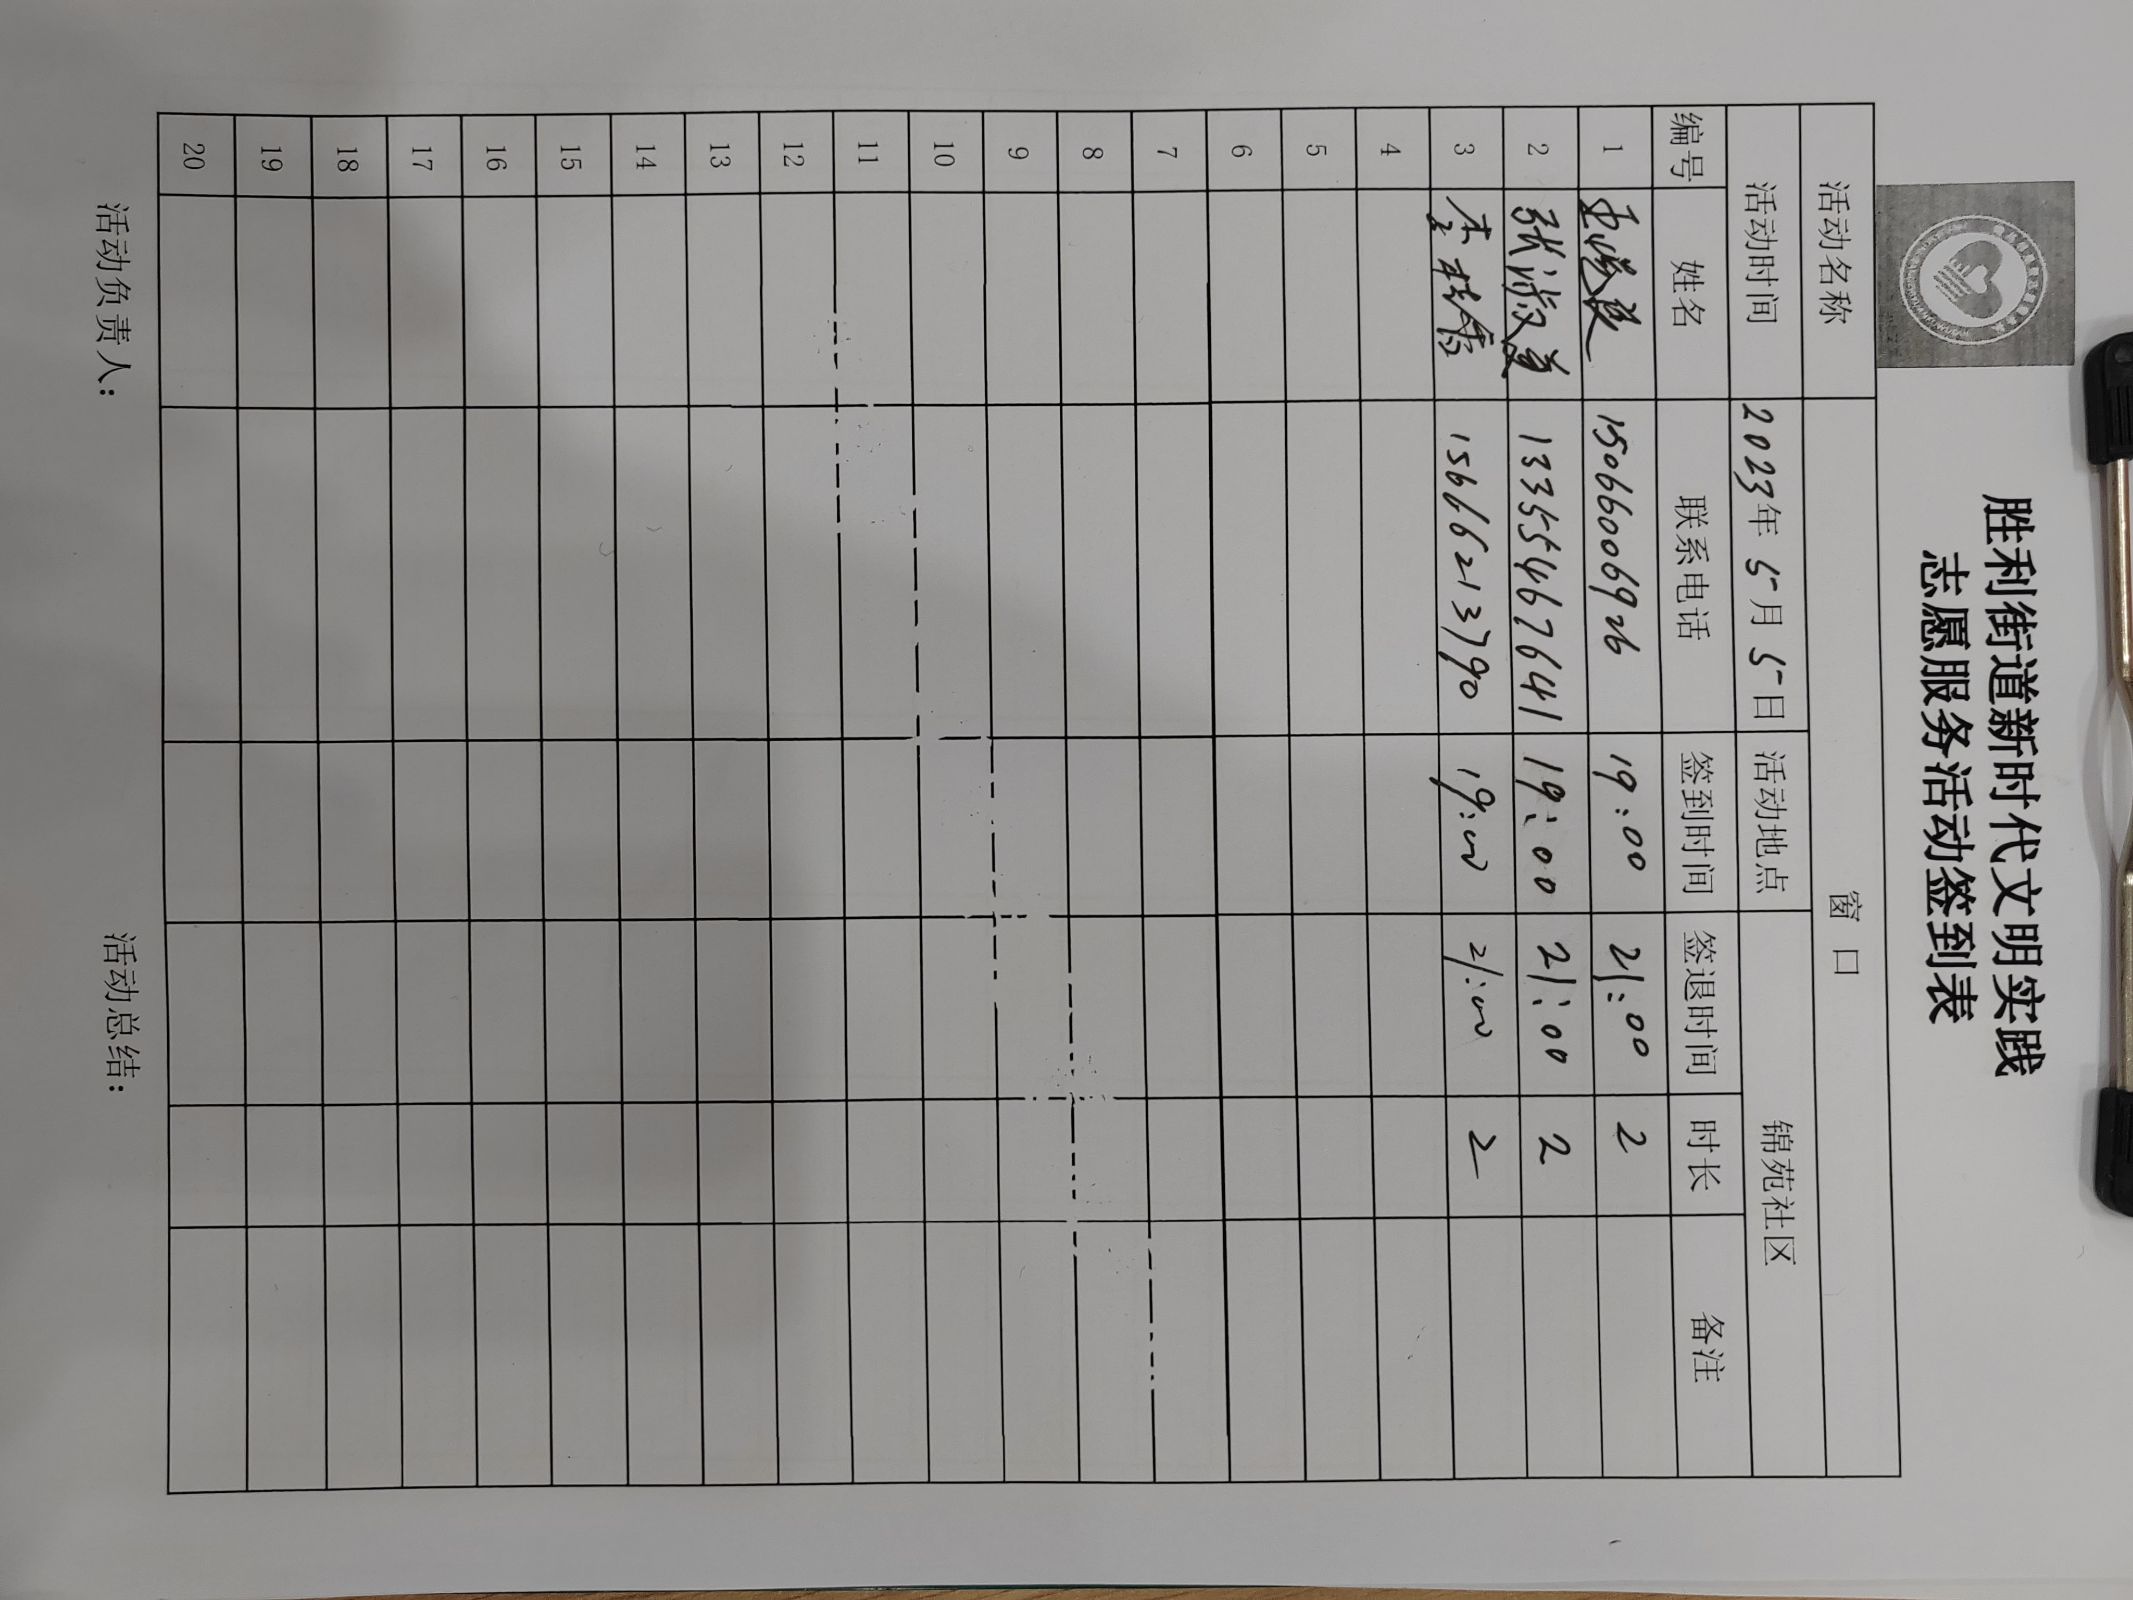 胜利街道新时代文明实践
志愿服务活动签到表
活动名称 窗口
活动时间 2023年5月5日 活动地点 锦苑社区
编号 姓名 联系电话 签到时间 签退时间 时长 备注
1 15066006926 19:00 21:00 2
2 张淑 13355467641 19:00 21:00 2
3 李桂 15666213790 19:00 21:00 2
4
5
6
7
8
9
10
11
12
13
14
15
16
17
18
19
20
活动负责人: 活动总结: